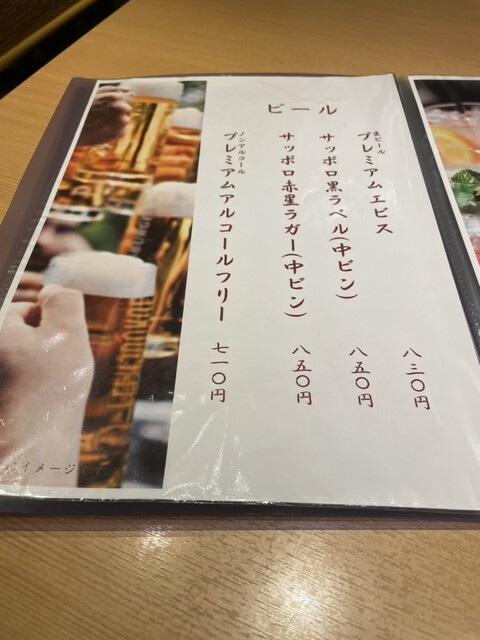 ビール
生ビール
プレミアムエビス 八三〇円
サッポロ黒ラベル(中ビン) 八五〇円
サッポロ赤星ラガー(中ビン) 八五〇円
ノンアルコール
プレミアムアルコールフリー 七一〇円
イメージ